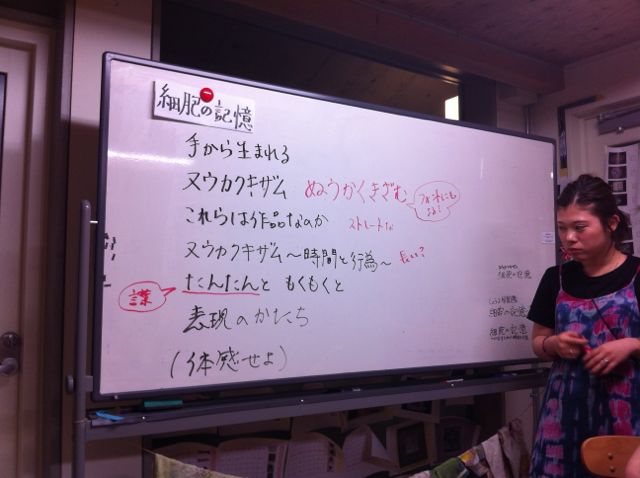 細胞の記憶
手から生まれる
ヌウカクキザム ぬうかくきざむ
これらは作品なのか ストレートな
ヌウカクキザム〜時間と行為〜 長い?
たんたんと もくもくと
表現のかたち
(体感せよ)
細胞の記憶
細胞の記憶
細胞の記憶